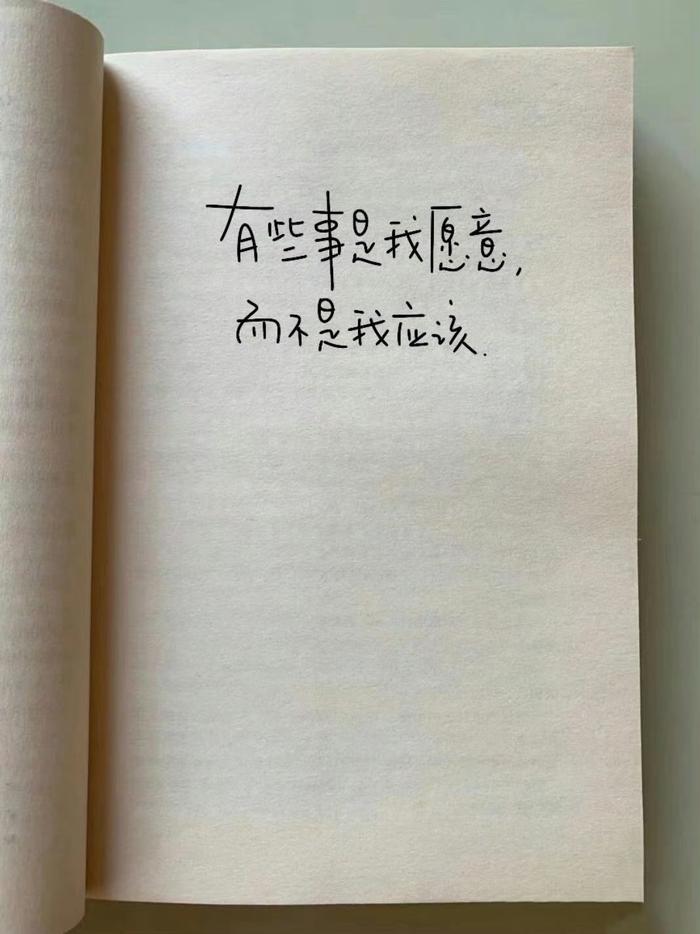 有些事是我愿意,
而不是我应该.